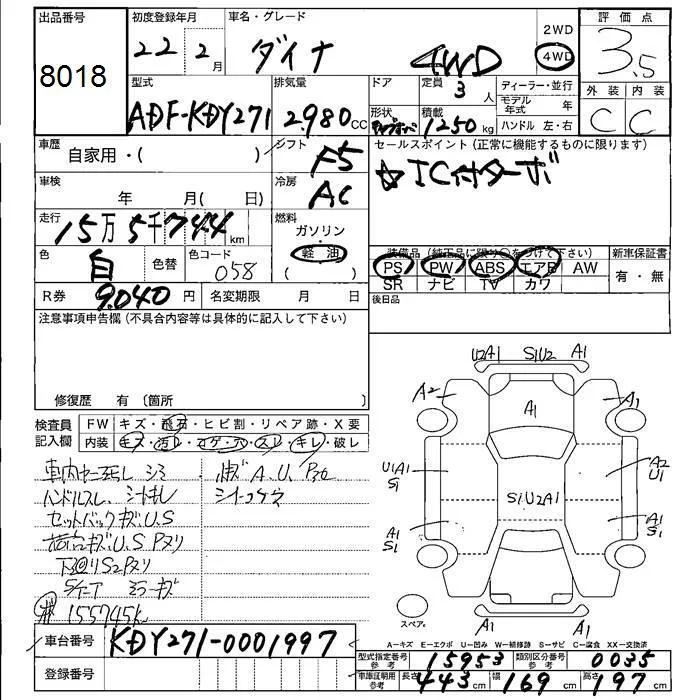 出品番号
8018
初度登録年月
22 2月
車名・グレード
ダイナ 4WD
2WD
4WD
評価点
3.5
外装 内装
C C
型式
ADF-KDY271
排気量
2.980CC
ドア
形状
定員
3人
積載
1250kg
ディーラー・並行
モデル年式 年
ハンドル 左・右
車歴
自家用・( )
シフト
F5
セールスポイント(正常に機能するものに限ります)
☆IC付ターボ
車検
年 月( 日)
冷房
AC
走行
15万5千744km
燃料
ガソリン
軽油
( )
色
白
色替
色コード
058
装備品(純正品に限り○をつけて下さい)
PS PW ABS エアB AW
SR ナビ TV カワ
新車保証書
有・無
R券 9.040円
名変期限 月 日
後日品
注意事項申告欄(不具合内容等は具体的に記入して下さい)
修復歴 有〔箇所 〕
検査員記入欄
FW キズ・飛石・ヒビ割・リペア跡・X要
内装 キズ・汚レ・コゲ・穴・スレ・キレ・破レ
ハンドルスレ、シートキレ
セットバックキズ.U.S
荷台キズ.U.S Pヌリ
下廻りS2Pヌリ
155745k
U2A1 S1U2 A1
A2 A1 A1
U1A1
S1
S1U2A1
A2
U1
A1
S1
A1
S1
スペア
A1 A1
A-キズ E-エクボ U-凹み W-補修跡 S-サビ C-腐食 XX-交換済
車台番号
KDY271-0001997
登録番号
型式指定番号 参考
15953
類別区分番号 参考
0035
車庫証明用 参考
長さ 443cm
幅 169cm
高さ 197cm